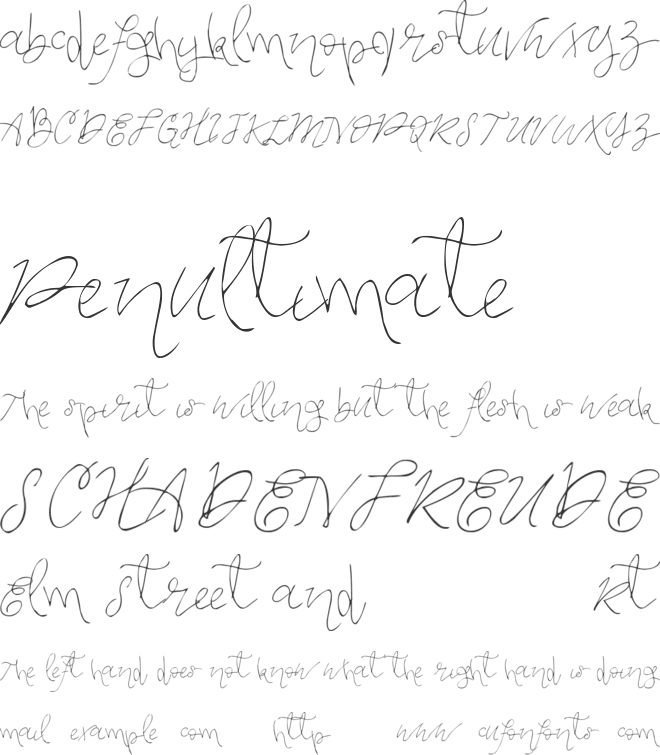 abcdefghyklmnopqrstuvwxyz
ABCDEFGHIJKLMNOPQRSTUVWXYZ
Penultimate
The spirit is willing but the flesh is weak
SCHADENFREUDE
Elm street and rt
The left hand does not know what the right hand is doing
mail example com http www cufonfonts com